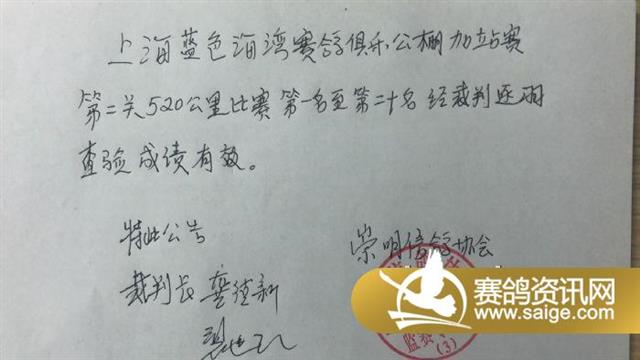 上海蓝色海湾赛鸽俱乐公棚加站赛
第二关520公里比赛第一名至第二十名经裁判逐羽
查验成绩有效。
特此公告
崇明信鸽协会
裁判长
监
(3)
赛鸽资讯网
www.saige.com